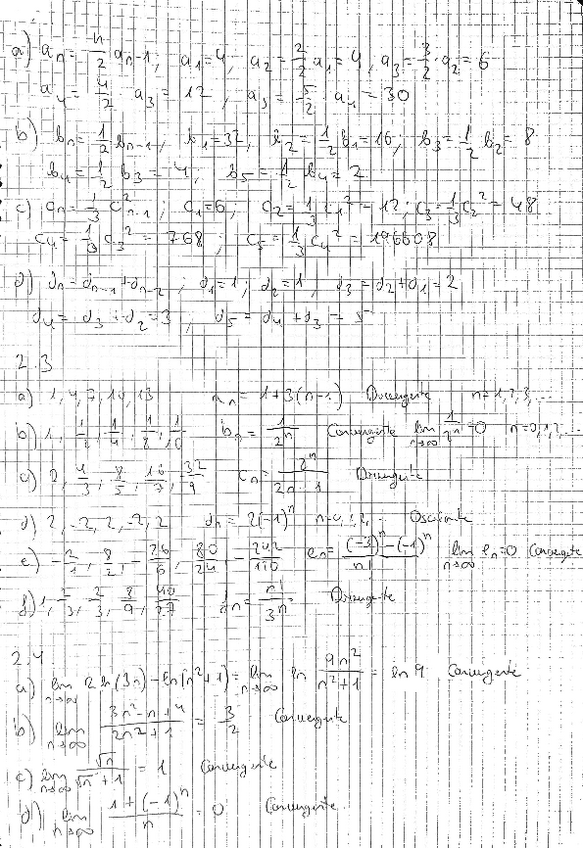 a) aₙ = n/2 aₙ₋₁ ; a₁ = 4 ; a₂ = 2/2 a₁ = 4 , a₃ = 3/2 · a₂ = 6
a₄ = 4/2 · a₃ = 12 , a₅ = 5/2 · a₄ = 30
b) bₙ = 1/2 bₙ₋₁ , b₁ = 32 , b₂ = 1/2 b₁ = 16 ; b₃ = 1/2 b₂ = 8
b₄ = 1/2 b₃ = 4 , b₅ = 1/2 b₄ = 2
c) cₙ = 1/3 c²ₙ₋₁ ; c₁ = 6 , c₂ = 1/3 c₁² = 12 ; c₃ = 1/3 c₂² = 48
c₄ = 1/3 c₃² = 768 ; c₅ = 1/3 c₄² = 196608
d) dₙ = dₙ₋₁ + dₙ₋₂ ; d₁ = 1 ; d₂ = 1 , d₃ = d₂ + d₁ = 2
d₄ = d₃ + d₂ = 3 , d₅ = d₄ + d₃ = 5
2.3
a) 1, 4, 7, 10, 13 aₙ = 1 + 3(n-1) Divergente n = 1, 2, 3, ...
b) 1, 1/2, 1/4, 1/8, 1/16 bₙ = 1/2ⁿ Convergente lim n→∞ 1/2ⁿ = 0 n = 0, 1, 2, ...
c) 2, 4/3, 8/5, 16/7, 32/9 cₙ = 2ⁿ/(2n-1) Divergente
d) 2, -2, 2, -2, 2 dₙ = 2(-1)ⁿ n = 0, 1, 2, ... Oscilante
e) -2/1, 8/2, -26/6, 80/24, -242/120 eₙ = ((-3)ⁿ - (-1)ⁿ)/n! lim n→∞ eₙ = 0 Convergente
f) 1, 2/3, 2/3, 8/9, 40/27 n!/3ⁿ Divergente
2.4
a) lim n→∞ 2 ln(3n) - ln(n²+1) = lim n→∞ ln 9n²/(n²+1) = ln 9 Convergente
b) lim n→∞ (3n² - n + 4)/(2n² + 1) = 3/2 Convergente
c) lim n→∞ √n/(√n + 1) = 1 Convergente
d) lim n→∞ (1 + (-1)ⁿ)/n = 0 Convergente